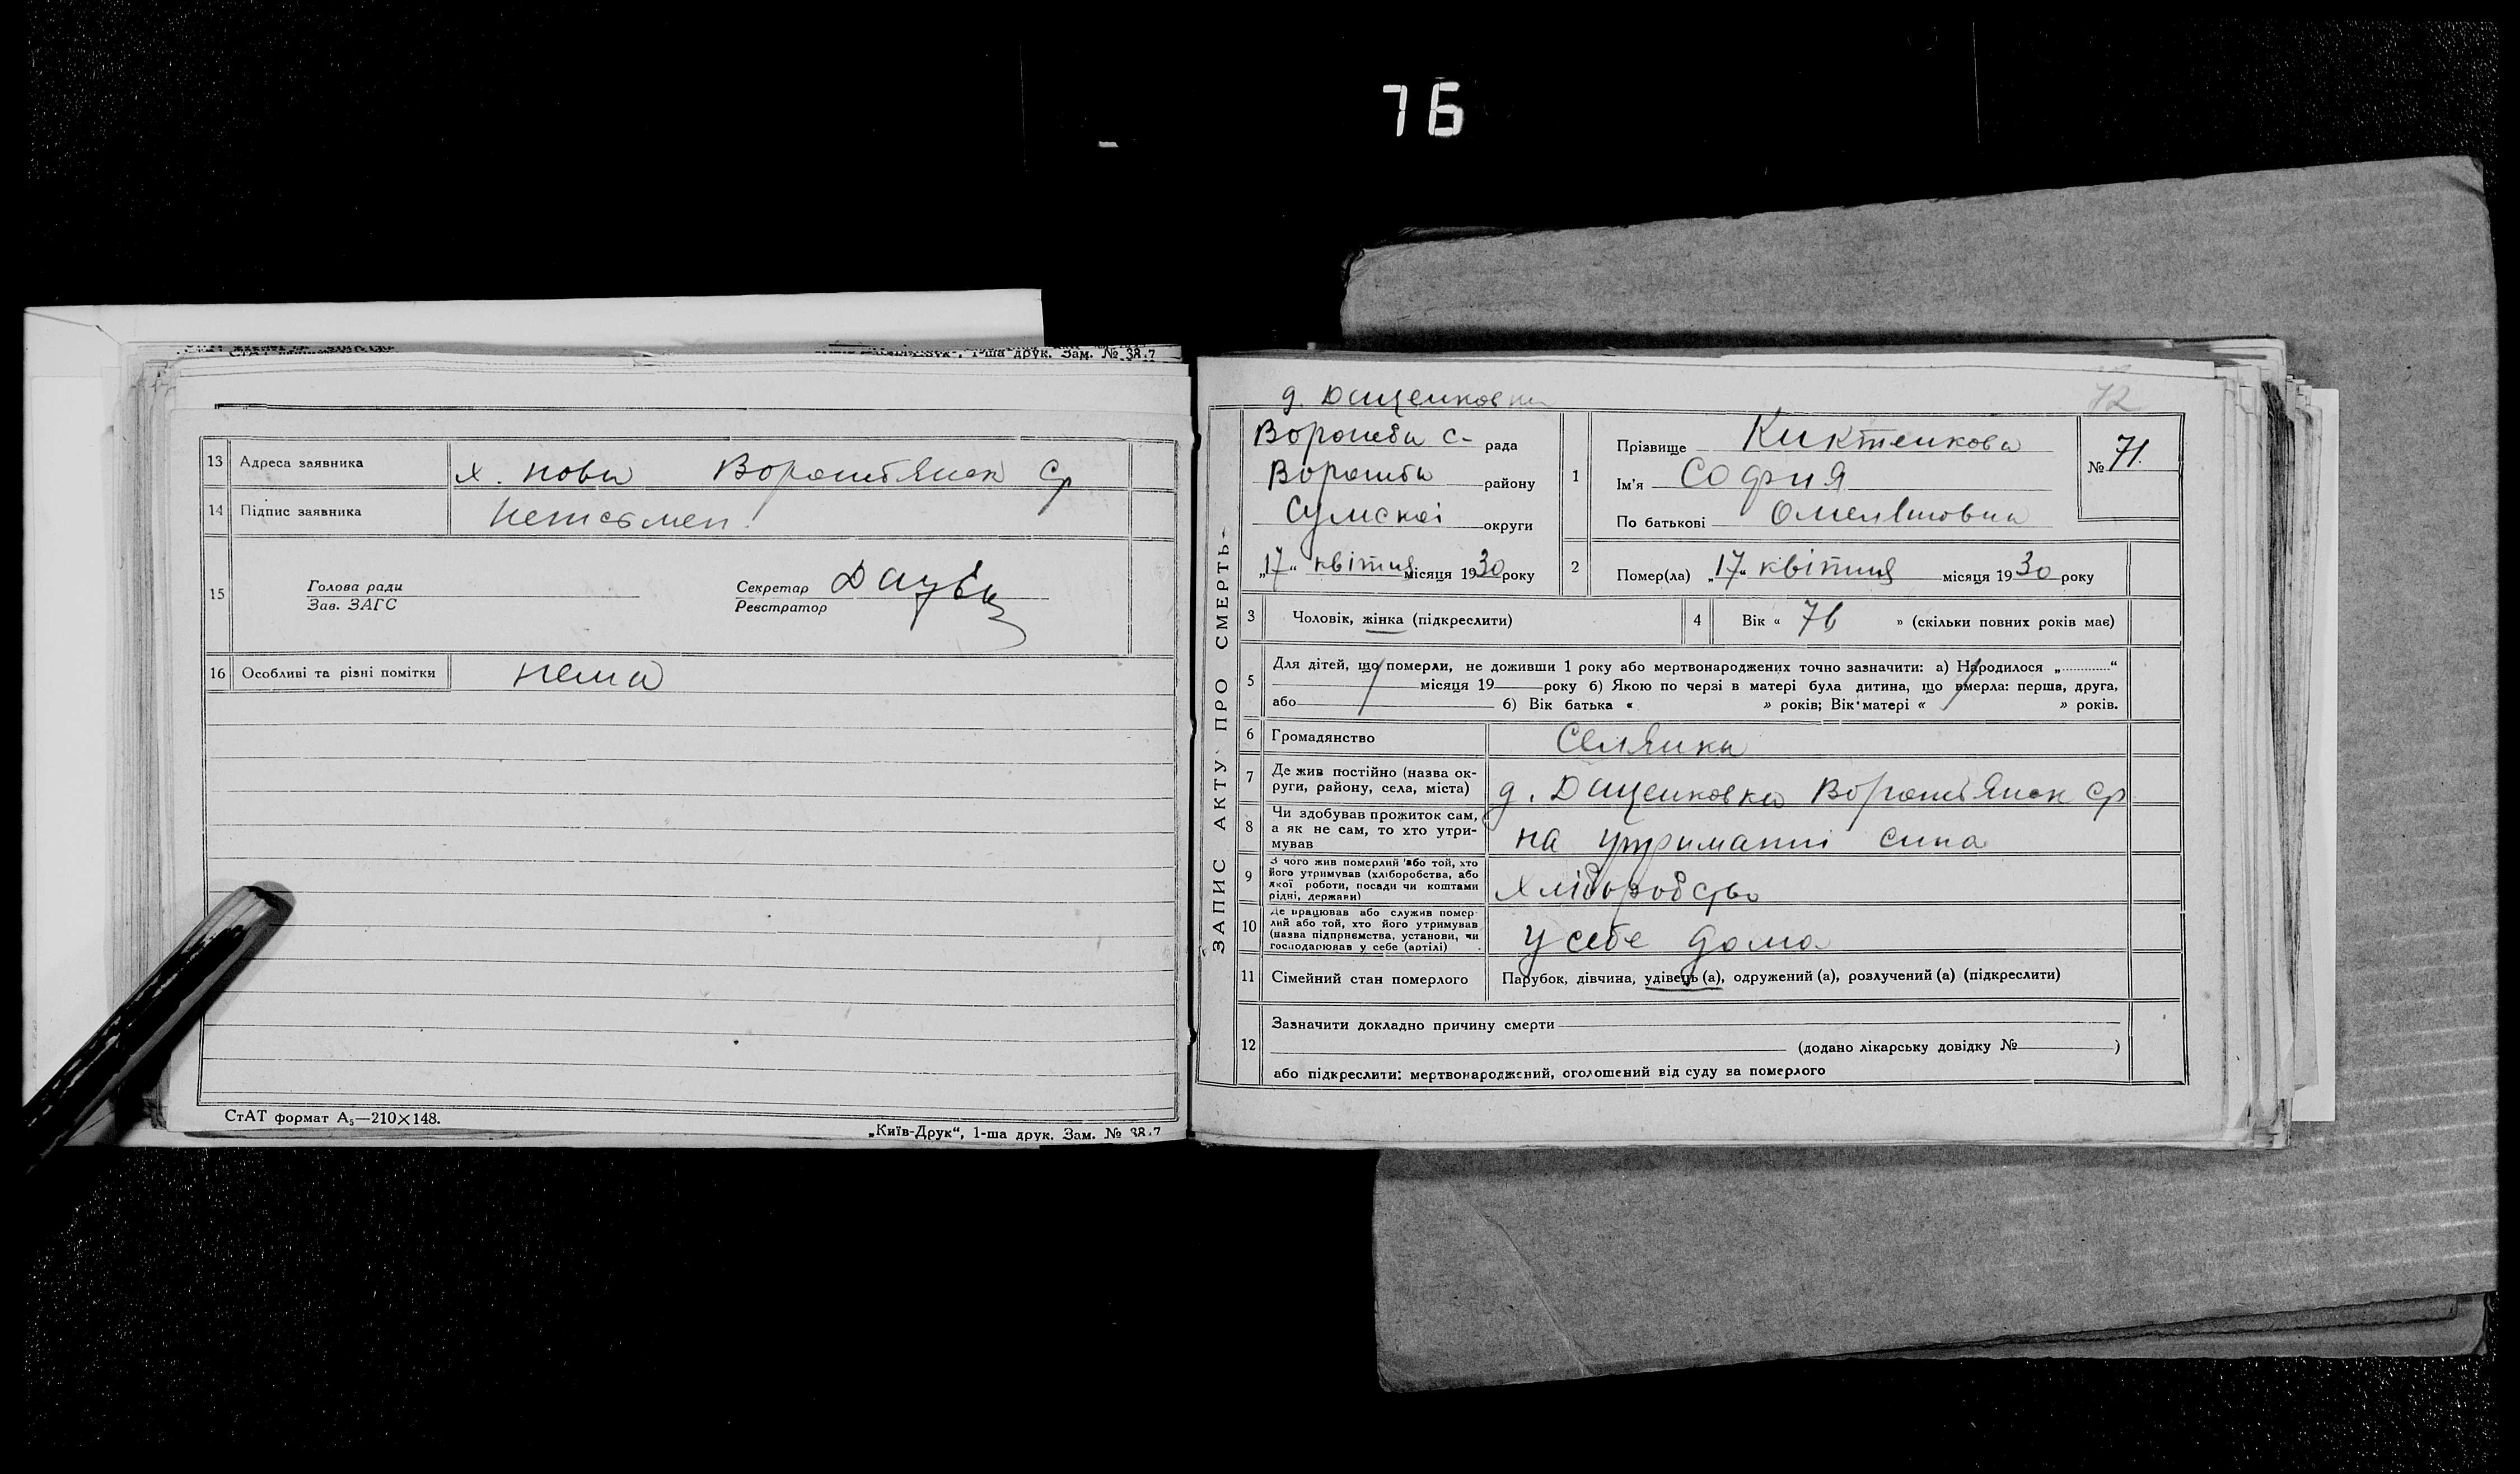 76
1-ша друк. Зам. № 38.7
13 Адреса заявника х. нова Ворожбянск Ср
14 Підпис заявника неписьмен.
15 Голова ради
Зав. ЗАГС
Секретар
Реєстратор
16 Особливі та різні помітки нема
СтАТ формат А₅—210×148.
„Київ-Друк“, 1-ша друк. Зам. № 38.7
72
д. Дащенковка
ЗАПИС АКТУ ПРО СМЕРТЬ
Ворожба с- рада
Ворожба району
Сумскої округи
„17“ квітня місяця 1930 року
1 Прізвище Киктенкова
Ім’я София
По батькові Омеляновна
№ 71.
2 Помер(ла) „17“ квітня місяця 1930 року
3 Чоловік, жінка (підкреслити)
4 Вік « 76 » (скільки повних років має)
5 Для дітей, що померли, не доживши 1 року або мертвонароджених точно зазначити: а) Народилося „............“
місяця 19 року б) Якою по черзі в матері була дитина, що вмерла: перша, друга,
або б) Вік батька « » років; Вік матері « » років.
6 Громадянство Селянка
7 Де жив постійно (назва ок-
руги, району, села, міста) д. Дащенковка Ворожбянск Ср
8 Чи здобував прожиток сам,
а як не сам, то хто утри-
мував на утриманні сина
9 З чого жив померлий або той, хто
його утримував (хліборобства, або
якої роботи, посади чи коштами
рідні, держави) хліборобство
10 Де працював або служив помер-
лий або той, хто його утримував
(назва підприємства, установи, чи
господарював у себе (артілі) у себе дома
11 Сімейний стан померлого Парубок, дівчина, удівець (а), одружений (а), розлучений (а) (підкреслити)
12 Зазначити докладно причину смерти
(додано лікарську довідку № )
або підкреслити: мертвонароджений, оголошений від суду за померлого